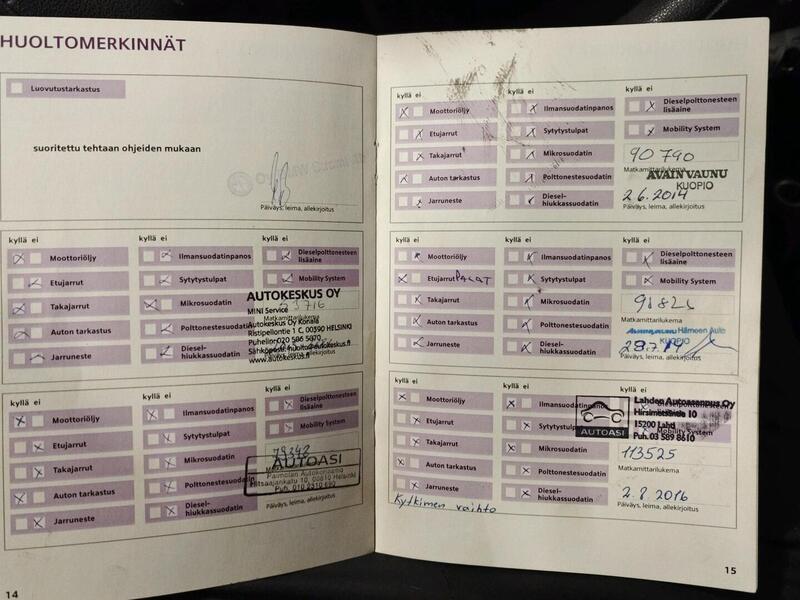 HUOLTOMERKINNÄT
Luovutustarkastus
suoritettu tehtaan ohjeiden mukaan
Päiväys, leima, allekirjoitus
kyllä ei kyllä ei kyllä ei
Moottoriöljy Ilmansuodatinpanos Dieselpolttonesteen lisäaine
Etujarrut Sytytystulpat Mobility System
Takajarrut Mikrosuodatin
Auton tarkastus Polttonestesuodatin
Jarruneste Diesel-hiukkassuodatin
AUTOKESKUS OY
MINI Service
Autokeskus Oy Konala
Ristipellontie 1 C, 00390 HELSINKI
Puhelin 020 506 5070
www.autokeskus.fi
kyllä ei kyllä ei kyllä ei
Moottoriöljy Ilmansuodatinpanos Dieselpolttonesteen lisäaine
Etujarrut Sytytystulpat Mobility System
Takajarrut Mikrosuodatin
Auton tarkastus Polttonestesuodatin
Jarruneste Diesel-hiukkassuodatin
79342
AUTOASI
Paimolan Autokorjaamo
Hitsaajankatu 10, 00810 Helsinki
Puh. 010 2310 690
14
kyllä ei kyllä ei kyllä ei
Moottoriöljy Ilmansuodatinpanos Dieselpolttonesteen lisäaine
Etujarrut Sytytystulpat Mobility System
Takajarrut Mikrosuodatin
Auton tarkastus Polttonestesuodatin
Jarruneste Diesel-hiukkassuodatin
90 790
Matkamittarilukema
AVAIN VAUNU
KUOPIO
2.6.2014
Päiväys, leima, allekirjoitus
kyllä ei kyllä ei kyllä ei
Moottoriöljy Ilmansuodatinpanos Dieselpolttonesteen lisäaine
Etujarrut PALAT Sytytystulpat Mobility System
Takajarrut Mikrosuodatin
Auton tarkastus Polttonestesuodatin
Jarruneste Diesel-hiukkassuodatin
Matkamittarilukema
Hämeen Auto
KUOPIO
Päiväys, leima, allekirjoitus
kyllä ei kyllä ei kyllä ei
Moottoriöljy Ilmansuodatinpanos Dieselpolttonesteen lisäaine
Etujarrut Sytytystulpat Mobility System
Takajarrut Mikrosuodatin
Auton tarkastus Polttonestesuodatin
Jarruneste Diesel-hiukkassuodatin
Kytkimen vaihto
AUTOASI
Lahden Autoasennus Oy
Hirsimetsäntie 10
15200 Lahti
Puh. 03 589 8610
113525
Matkamittarilukema
2.8.2016
Päiväys, leima, allekirjoitus
15